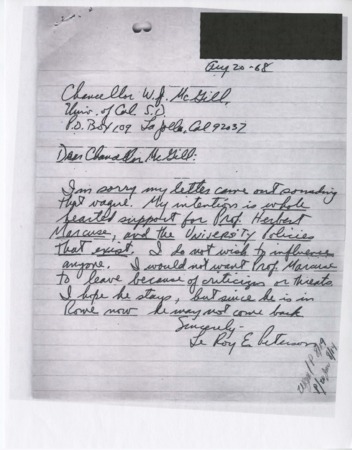 Aug 20-68
Chancellor W.J. McGill,
Univ. of Cal S.D.
P.O. Box 109 La Jolla, Cal 92037
Dear Chancellor McGill:
I'm sorry my letter came out something
that vague. My intention is whole
hearted support for Prof. Herbert
Marcuse, and the University Policies
that exist. I do not wish to influence
anyone. I would not want Prof. Marcuse
to leave because of criticizm or threats
I hope he stays, but since he is in
Rome now he may not come back
Sincerely-
Le Roy E. Peterson